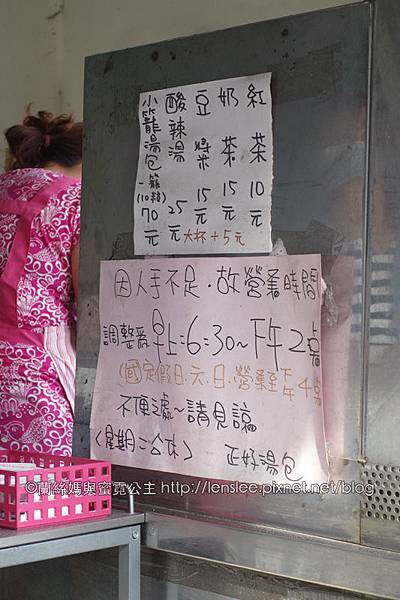 紅茶 10元
奶茶 15元
豆漿 15元
酸辣湯 25元
小籠湯包一籠(10粒)70元
大杯+5元
因人手不足，故營業時間
調整為早上6:30~下午2點
(國定假日.六.日.營業至下午4點
不便之處~請見諒
(星期二公休)
正好湯包
©蘭絲媽與蜜霓公主 http://lenslee.pixnet.net/blog